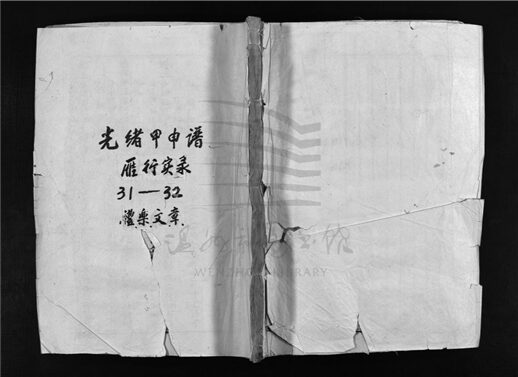 光绪甲申谱
雁行实录
31—32
禮樂文章
温州市图书馆
WENZHOU LIBRARY